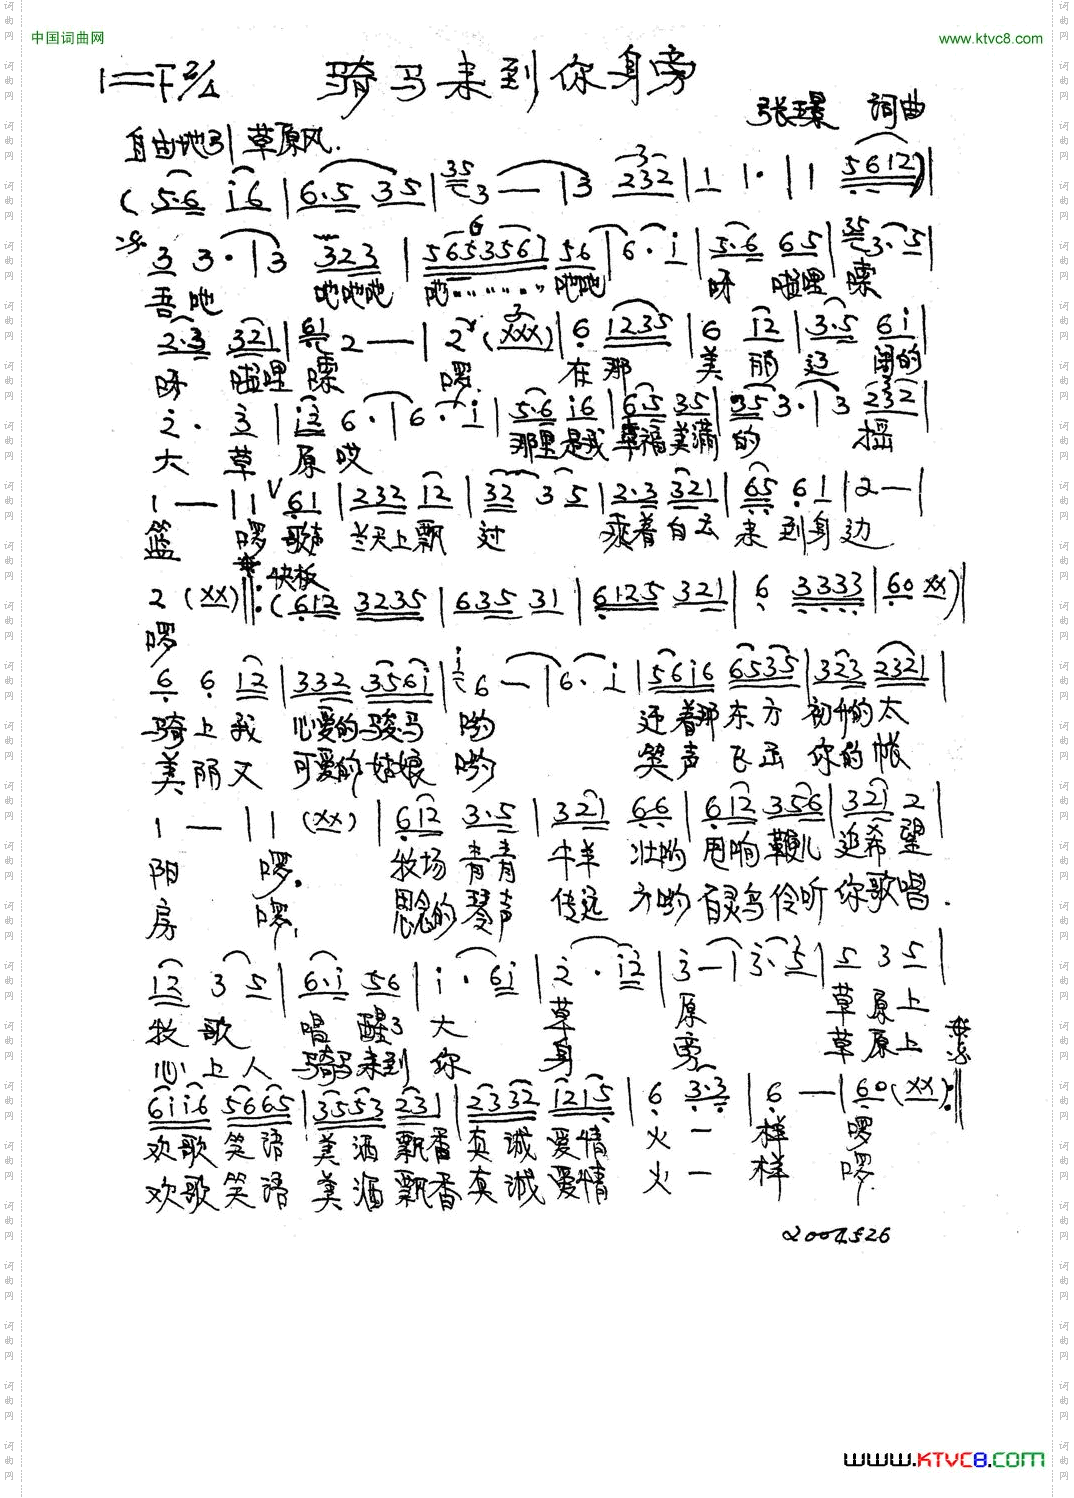 中国词曲网
www.ktvc8.com
1=F 2/4 骑马来到你身旁
张璟 词曲
自由地 草原风.
(5·6 i6 | 6·5 35 | 35 3 — | 3 232 | 1 1· | 1 5612) |
3 3· | 3 323 | 5653561 56 | 6· i | 5·6 65 | 35 3·5 |
吾吔 吔吔吔 吔 吔吔 呀 啦哩 嗦
2·3 321 | 61 2 — | 2 (XXX) | 6 1235 | 6 i2 | 3·5 6i |
呀 啦哩 嗦 啰. 在那 美丽 辽阔的
2· 3 | i2 6· | 6· i | 5·6 i6 | 65 35 | 35 3· | 3 232 |
大草原哎 那里是我 幸福美满 的 摇
1 — | 1 V 61 | 232 12 | 32 3 5 | 2·3 321 | 65 6 1 | 2 — |
篮 啰 歌声 兰天上飘 过 乘着白云 来到身边
快板
2 (XX) ‖: (612 3235 | 635 31 | 6125 321 | 6 3333 | 60 XX) |
啰
6 6 12 | 332 356i | i 6 — | 6· i | 56i6 6535 | 323 2321 |
骑上我 心爱的骏马 哟 迎着那东方 初升的太
美丽又 可爱的姑娘 哟 笑声飞出 你的帐
1 — | 1 (XX) | 612 3·5 | 321 66 | 612 356 | 321 2 |
阳 啰. 牧场青青 牛羊 壮哟 甩响鞭儿 追希望
房 啰. 思念的琴声 传远方哟 百灵鸟伶听 你歌唱.
12 3 5 | 6·i 56 | i· 6i | 2· i2 | 3 — | 3·5 | 5 3 5 |
牧歌 唱醒了 大 草 原 草原上
心上人 骑马来到 你 身 旁 草原上
6ii6 5665 | 3553 231 | 2332 1215 | 6 3·3 | 6 — | 60 (XX) :‖
欢歌笑语 美酒飘香 真诚爱情 火一样 啰
欢歌笑语 美酒飘香 真诚爱情 火一样 啰.
www.KTVC8.com